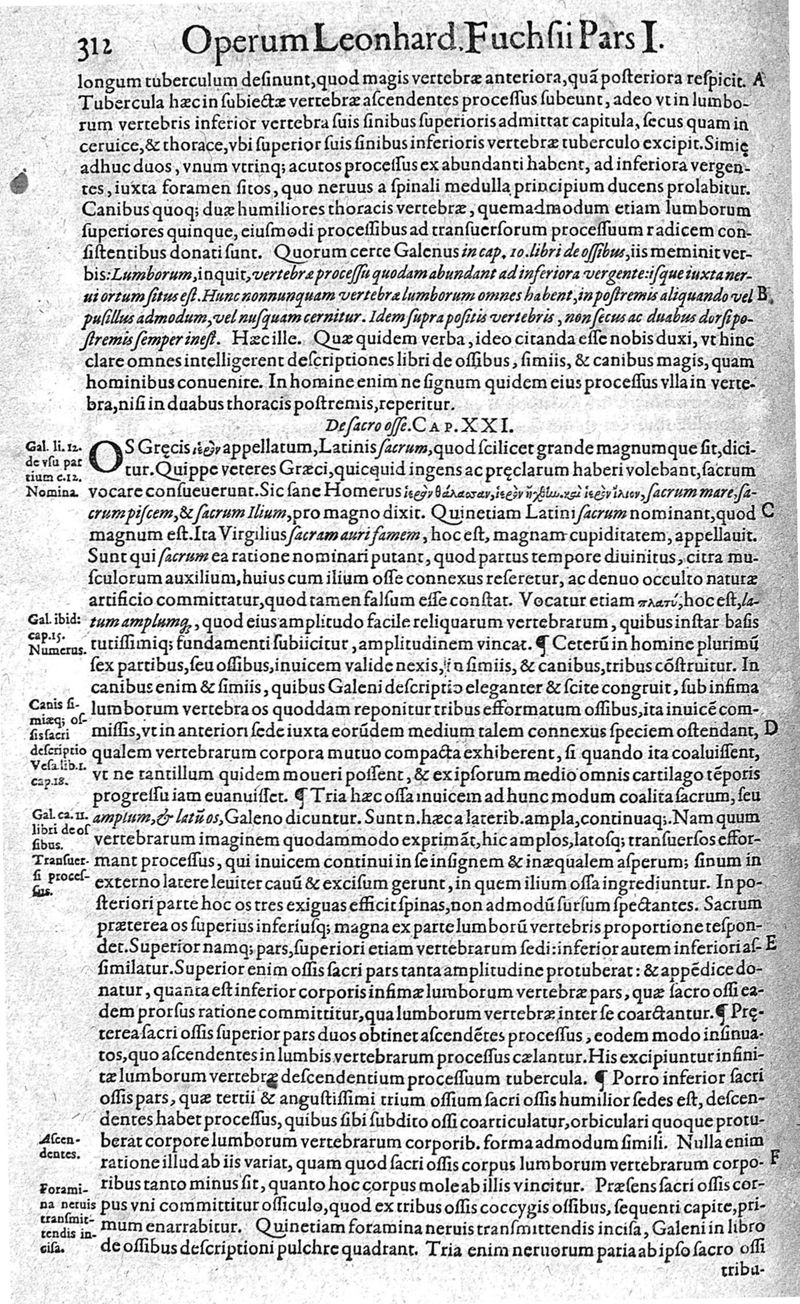 312 Operum Leonhard. Fuchsii Pars I.
longum tuberculum desinunt, quod magis vertebræ anteriora, quã posteriora respicit. A
Tubercula hæc in subiectæ vertebræ ascendentes processus subeunt, adeo vt in lumbo-
rum vertebris inferior vertebra suis sinibus superioris admittat capitula, secus quam in
ceruice, & thorace, vbi superior suis sinibus inferioris vertebræ tuberculo excipit. Simię
adhuc duos, vnum vtrinq; acutos processus ex abundanti habent, ad inferiora vergen-
tes, iuxta foramen sitos, quo neruus a spinali medulla principium ducens prolabitur.
Canibus quoq; duæ humiliores thoracis vertebræ, quemadmodum etiam lumborum
superiores quinque, eiusmodi processibus ad transuersorum processuum radicem con-
sistentibus donati sunt. Quorum certe Galenus in cap. 10. libri de ossibus, iis meminit ver-
bis: Lumborum, inquit, vertebræ processu quodam abundant ad inferiora vergente: isque iuxta ner-
ui ortum situs est. Hunc nonnunquam vertebræ lumborum omnes habent, in postremis aliquando vel B
pusillus admodum, vel nusquam cernitur. Idem supra positis vertebris, non secus ac duabus dorsi po-
stremis semper inest. Hæc ille. Quæ quidem verba, ideo citanda esse nobis duxi, vt hinc
clare omnes intelligerent descriptiones libri de ossibus, simiis, & canibus magis, quam
hominibus conuenire. In homine enim ne signum quidem eius processus vlla in verte-
bra, nisi in duabus thoracis postremis, reperitur.
De sacro osse. CAP. XXI.
Gal. li. 12.
de vsu par
tium c. 12.
Nomina.
OS Gręcis ἱερὸν appellatum, Latinis sacrum, quod scilicet grande magnumque sit, dici-
tur. Quippe veteres Græci, quicquid ingens ac pręclarum haberi volebant, sacrum
vocare consueuerunt. Sic sane Homerus ἱερὸν θάλασσαν, ἱερὸν καὶ ἱερὸν ἴλιον, sacrum mare, sa-
crum piscem, & sacrum Ilium, pro magno dixit. Quinetiam Latini sacrum nominant, quod C
magnum est. Ita Virgilius sacram auri famem, hoc est, magnam cupiditatem, appellauit.
Sunt qui sacrum ea ratione nominari putant, quod partus tempore diuinitus, citra mu-
sculorum auxilium, huius cum ilium osse connexus reseretur, ac denuo occulto naturæ
artificio committatur, quod tamen falsum esse constat. Vocatur etiam πλατύ, hoc est, la-
Gal. ibid:
cap. 15.
Numerus.
tum amplumq;, quod eius amplitudo facile reliquarum vertebrarum, quibus instar basis
tutissimiq; fundamenti subiicitur, amplitudinem vincat. ¶ Ceterũ in homine plurimũ
sex partibus, seu ossibus, inuicem valide nexis, in simiis, & canibus, tribus cõstruitur. In
canibus enim & simiis, quibus Galeni descriptio eleganter & scite congruit, sub infima
Canis si-
miæq; os-
sis sacri
descriptio
Vesa. lib. 1.
cap. 18.
lumborum vertebra os quoddam reponitur tribus efformatum ossibus, ita inuicẽ com-
missis, vt in anteriori sede iuxta eorũdem medium talem connexus speciem ostendant, D
qualem vertebrarum corpora mutuo compacta exhiberent, si quando ita coaluissent,
vt ne tantillum quidem moueri possent, & ex ipsorum medio omnis cartilago tẽporis
progressu iam euanuisset. ¶ Tria hæc ossa inuicem ad hunc modum coalita sacrum, seu
Gal. ca. 11.
libri de os
sibus.
Transuer-
si proces-
sus.
amplum, & latũ os, Galeno dicuntur. Sunt n. hæc a laterib. ampla, continuaq;. Nam quum
vertebrarum imaginem quodammodo exprimãt, hic amplos, latosq; transuersos effor-
mant processus, qui inuicem continui in se insignem & inæqualem asperum; sinum in
externo latere leuiter cauũ & excisum gerunt, in quem ilium ossa ingrediuntur. In po-
steriori parte hoc os tres exiguas efficit spinas, non admodũ sursum spectantes. Sacrum
præterea os superius inferiusq; magna ex parte lumborũ vertebris proportione respon-
det. Superior namq; pars, superiori etiam vertebrarum sedi: inferior autem inferiori as- E
similatur. Superior enim ossis sacri pars tanta amplitudine protuberat: & appẽdice do-
natur, quanta est inferior corporis infimæ lumborum vertebræ pars, quæ sacro ossi ea-
dem prorsus ratione committitur, qua lumborum vertebræ inter se coarctantur. ¶ Prę-
terea sacri ossis superior pars duos obtinet ascendẽtes processus, eodem modo insinua-
tos, quo ascendentes in lumbis vertebrarum processus cælantur. His excipiuntur infini-
tæ lumborum vertebræ descendentium processuum tubercula. ¶ Porro inferior sacri
ossis pars, quæ tertii & angustissimi trium ossium sacri ossis humilior sedes est, descen-
dentes habet processus, quibus sibi subdito ossi coarticulatur, orbiculari quoque protu-
Ascen-
dentes.
berat corpore lumborum vertebrarum corporib. forma admodum simili. Nulla enim
ratione illud ab iis variat, quam quod sacri ossis corpus lumborum vertebrarum corpo- F
ribus tanto minus sit, quanto hoc corpus mole ab illis vincitur. Præsens sacri ossis cor-
Forami-
na neruis
transmit-
tendis in-
cisa.
pus vni committitur officulo, quod ex tribus ossis coccygis ossibus, sequenti capite, pri-
mum enarrabitur. Quinetiam foramina neruis transmittendis incisa, Galeni in libro
de ossibus descriptioni pulchre quadrant. Tria enim neruorum paria ab ipso sacro ossi
tribu-